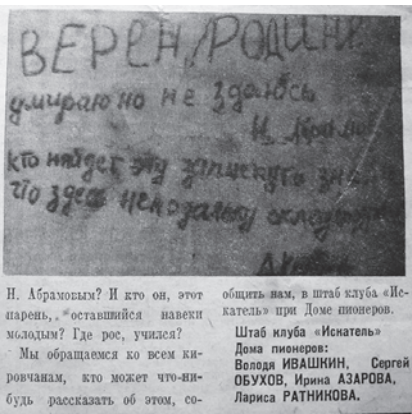 ВЕРЕН РОДИНЕ
умираю но не здаюсь
Н.
кто найдет эту записку
что здесь
Н. Абрамовым? И кто он, этот
парень, оставшийся навеки
молодым? Где рос, учился?
Мы обращаемся ко всем ки-
ровчанам, кто может что-ни-
будь рассказать об этом, со-
общить нам, в штаб клуба «Ис-
катель» при Доме пионеров.
Штаб клуба «Искатель»
Дома пионеров:
Володя ИВАШКИН, Сергей
ОБУХОВ, Ирина АЗАРОВА,
Лариса РАТНИКОВА.